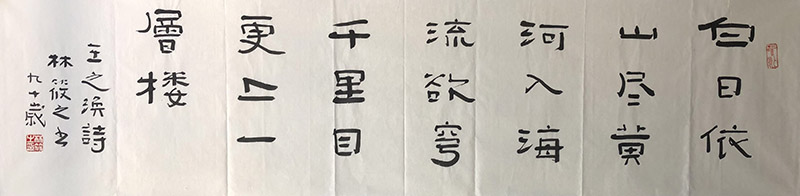 白日依
山尽黄
河入海
流欲穷
千里目
更上一
層楼
王之涣詩
林筱之书
九十歲